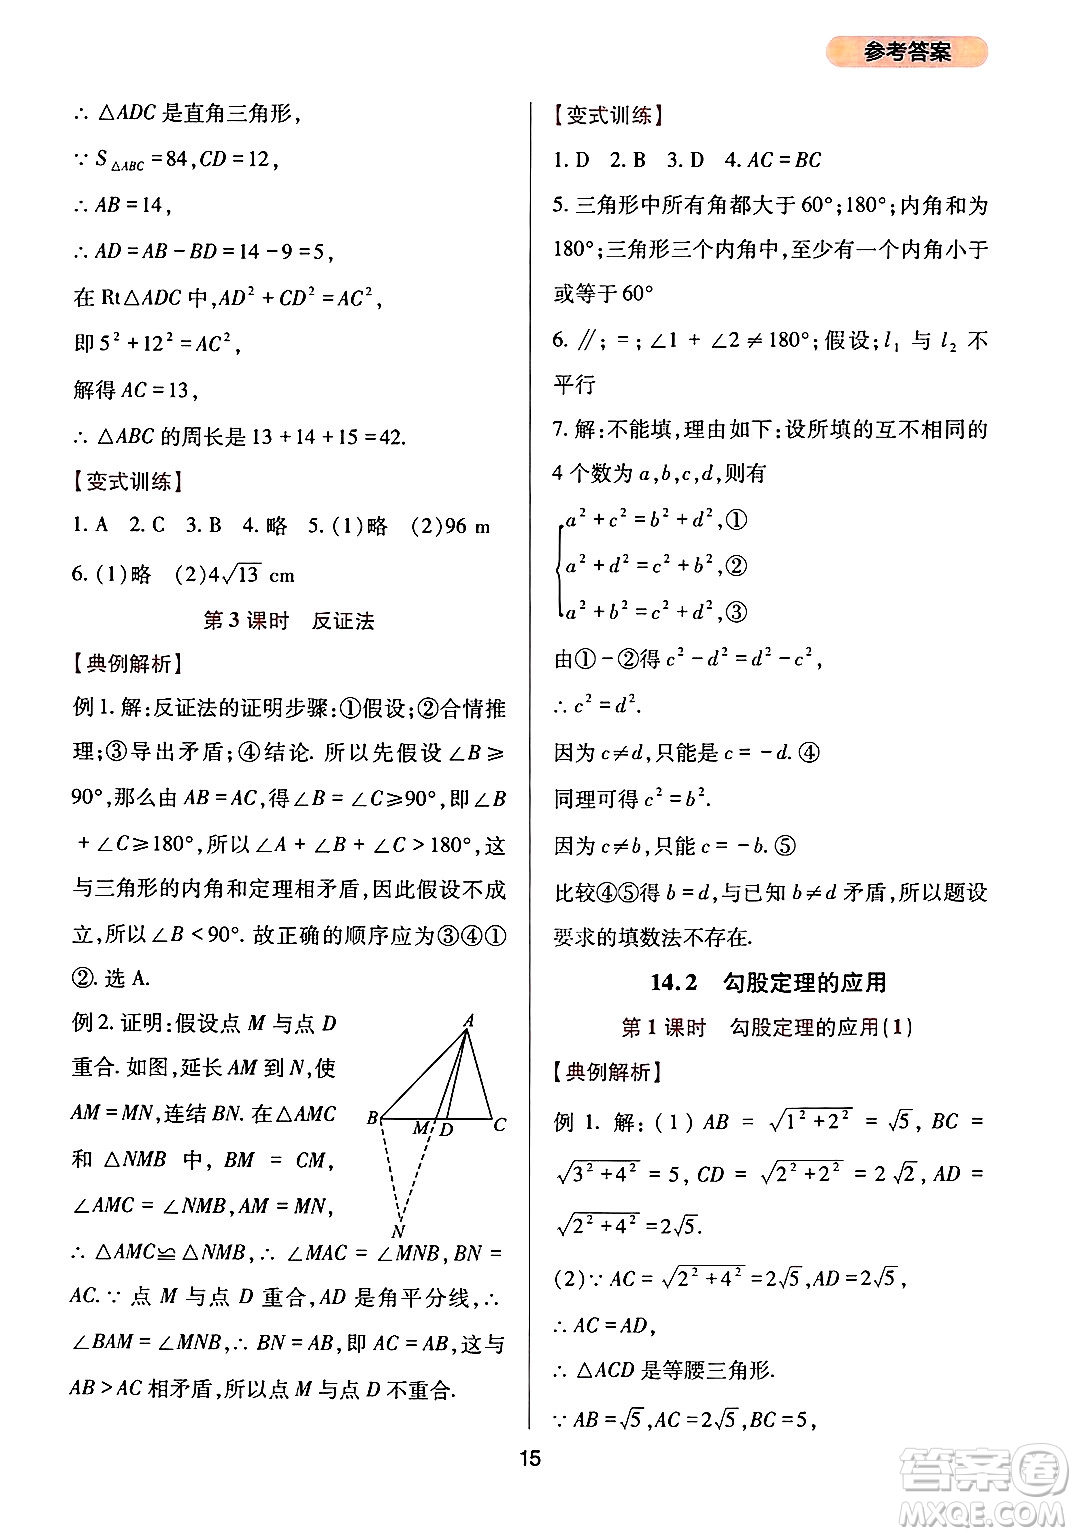 参考答案
∴ △ADC 是直角三角形,
∵ S△ABC = 84, CD = 12,
∴ AB = 14,
∴ AD = AB - BD = 14 - 9 = 5,
在 Rt△ADC 中, AD² + CD² = AC²,
即 5² + 12² = AC²,
解得 AC = 13,
∴ △ABC 的周长是 13 + 14 + 15 = 42.
【变式训练】
1. A 2. C 3. B 4. 略 5. (1)略 (2)96 m
6. (1)略 (2)4√13 cm
第 3 课时 反证法
【典例解析】
例 1. 解:反证法的证明步骤:①假设;②合情推
理;③导出矛盾;④结论. 所以先假设 ∠B ≥
90°,那么由 AB = AC,得∠B = ∠C ≥ 90°,即∠B
+ ∠C ≥ 180°,所以∠A + ∠B + ∠C > 180°,这
与三角形的内角和定理相矛盾,因此假设不成
立,所以∠B < 90°. 故正确的顺序应为③④①
②. 选 A.
例 2. 证明:假设点 M 与点 D
重合. 如图,延长 AM 到 N,使
AM = MN,连结 BN. 在△AMC
和 △NMB 中, BM = CM,
∠AMC = ∠NMB, AM = MN,
A
B
M
D
C
N
∴ △AMC≌△NMB, ∴ ∠MAC = ∠MNB, BN =
AC. ∵ 点 M 与点 D 重合, AD 是角平分线, ∴
∠BAM = ∠MNB, ∴ BN = AB, 即 AC = AB, 这与
AB > AC 相矛盾,所以点 M 与点 D 不重合.
【变式训练】
1. D 2. B 3. D 4. AC = BC
5. 三角形中所有角都大于 60°;180°;内角和为
180°;三角形三个内角中,至少有一个内角小于
或等于 60°
6. ∥; =; ∠1 + ∠2 ≠ 180°;假设;l₁ 与 l₂ 不
平行
7. 解:不能填,理由如下:设所填的互不相同的
4 个数为 a,b,c,d,则有
a² + c² = b² + d²,①
a² + d² = c² + b²,②
a² + b² = c² + d²,③
由①-②得 c² - d² = d² - c²,
∴ c² = d².
因为 c≠d,只能是 c = -d. ④
同理可得 c² = b².
因为 c≠b,只能 c = -b. ⑤
比较④⑤得 b = d,与已知 b≠d 矛盾,所以题设
要求的填数法不存在.
14.2 勾股定理的应用
第 1 课时 勾股定理的应用(1)
【典例解析】
例 1. 解: (1) AB = √(1² + 2²) = √5, BC =
√(3² + 4²) = 5, CD = √(2² + 2²) = 2√2, AD =
√(2² + 4²) = 2√5.
(2) ∵ AC = √(2² + 4²) = 2√5, AD = 2√5,
∴ AC = AD,
∴ △ACD 是等腰三角形.
∵ AB = √5, AC = 2√5, BC = 5,
15
答案圈
MXQE.COM